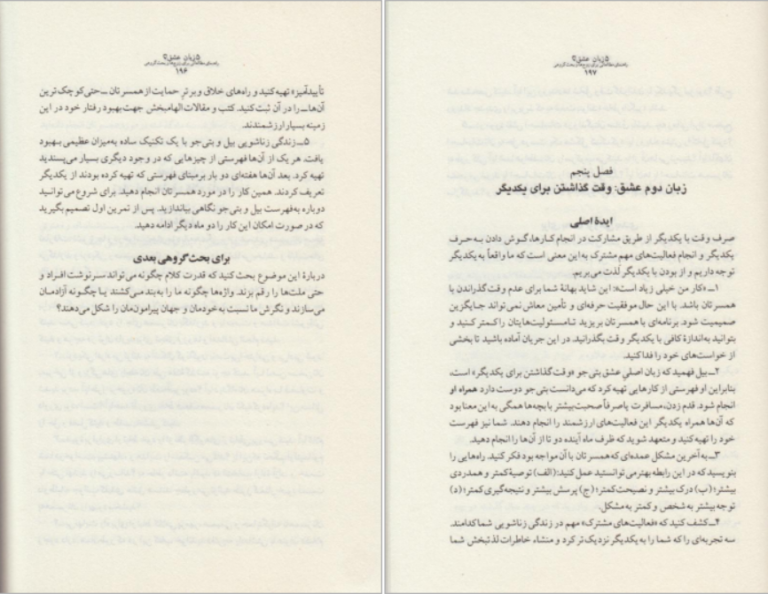 ۵ زبان عشق۲
۱۹۶
تأییدآمیزه تهیه کنید و راه‌های خلاق و برترِ حمایت از همسرتان ـ حتی کوچک‌ترین
آن‌ها ـ را در آن ثبت کنید. کتب و مقالات الهام‌بخش جهت بهبود رفتار خود در این
زمینه بسیار ارزشمندند.
۵ـ زندگی زناشویی بیل و بتی‌جو با یک تکنیک ساده به‌میزان عظیمی بهبود
یافت. هر یک از آن‌ها فهرستی از چیزهایی که در وجود دیگری بسیار می‌پسندید
تهیه کرد. بعد آن‌ها هفته‌ای دو بار بر مبنای فهرستی که تهیه کرده بودند از یکدیگر
تعریف کردند. همین کار را در مورد همسرتان انجام دهید. برای شروع می‌توانید
دوباره به‌فهرست بیل و بتی‌جو نگاهی بیاندازید. پس از تمرین اول تصمیم بگیرید
که در صورت امکان این کار را دو ماه دیگر ادامه دهید.
برای بحث گروهی بعدی
دربارهٔ این موضوع بحث کنید که قدرت کلام چگونه می‌تواند سرنوشت افراد و
حتی ملت‌ها را رقم بزند. واژه‌ها چگونه ما را به‌بند می‌کشند یا چگونه آزادمان
می‌سازند و نگرش ما نسبت به‌خودمان و جهان پیرامون‌مان را شکل می‌دهند؟
۵ زبان عشق۲
۱۹۷
فصل پنجم
زبان دوم عشق: وقت گذاشتن برای یکدیگر
ایدهٔ اصلی
صرف وقت با یکدیگر از طریق مشارکت در انجام کارها، گوش دادن به‌حرف
یکدیگر و انجام فعالیت‌های مهم مشترک به این معنی است که ما واقعاً به یکدیگر
توجه داریم و از بودن با یکدیگر لذت می‌بریم.
۱ـ «کار من خیلی زیاد است»: این شاید بهانهٔ شما برای عدم وقت‌گذراندن با
همسرتان باشد. با این حال موفقیت حرفه‌ای و تأمین معاش نمی‌تواند جایگزین
صمیمیت شود. برنامه‌ای با همسرتان بریزید تا مسئولیت‌هایتان را کمتر کنید و
بتوانید به‌اندازهٔ کافی با یکدیگر وقت بگذرانید. در این جریان آماده باشید تا بخشی
از خواست‌های خود را فدا کنید.
۲ـ بیل فهمید که زبان اصلی عشق بتی‌جو «وقت گذاشتن برای یکدیگر» است،
بنابراین او فهرستی از کارهایی تهیه کرد که می‌دانست بتی‌جو دوست دارد همراه او
انجام شود. قدم زدن، مسافرت یا صرفاً صحبت بیشتر با بچه‌ها همگی به این معنا بود
که آن‌ها همراه یکدیگر این فعالیت‌های ارزشمند را انجام دهند. شما نیز فهرست
خود را تهیه کنید و متعهد شوید که ظرف ماه آینده دو تا از آن‌ها را انجام دهید.
۳ـ به آخرین مشکل عمده‌ای که همسرتان با آن مواجه بود فکر کنید. راه‌هایی را
بنویسید که در این رابطه بهتر می‌توانستید عمل کنید: (الف) توصیهٔ کمتر و همدردی
بیشتر؛ (ب) درک بیشتر و نصیحت کمتر؛ (ج) پرسش بیشتر و نتیجه‌گیری کمتر؛ (د)
توجه بیشتر به شخص و کمتر به مشکل.
۴ـ کشف کنید که «فعالیت‌های مشترک» مهم در زندگی زناشویی شما کدامند.
سه تجربه‌ای را که شما را به یکدیگر نزدیک‌تر کرد و منشاء خاطرات لذتبخش شما